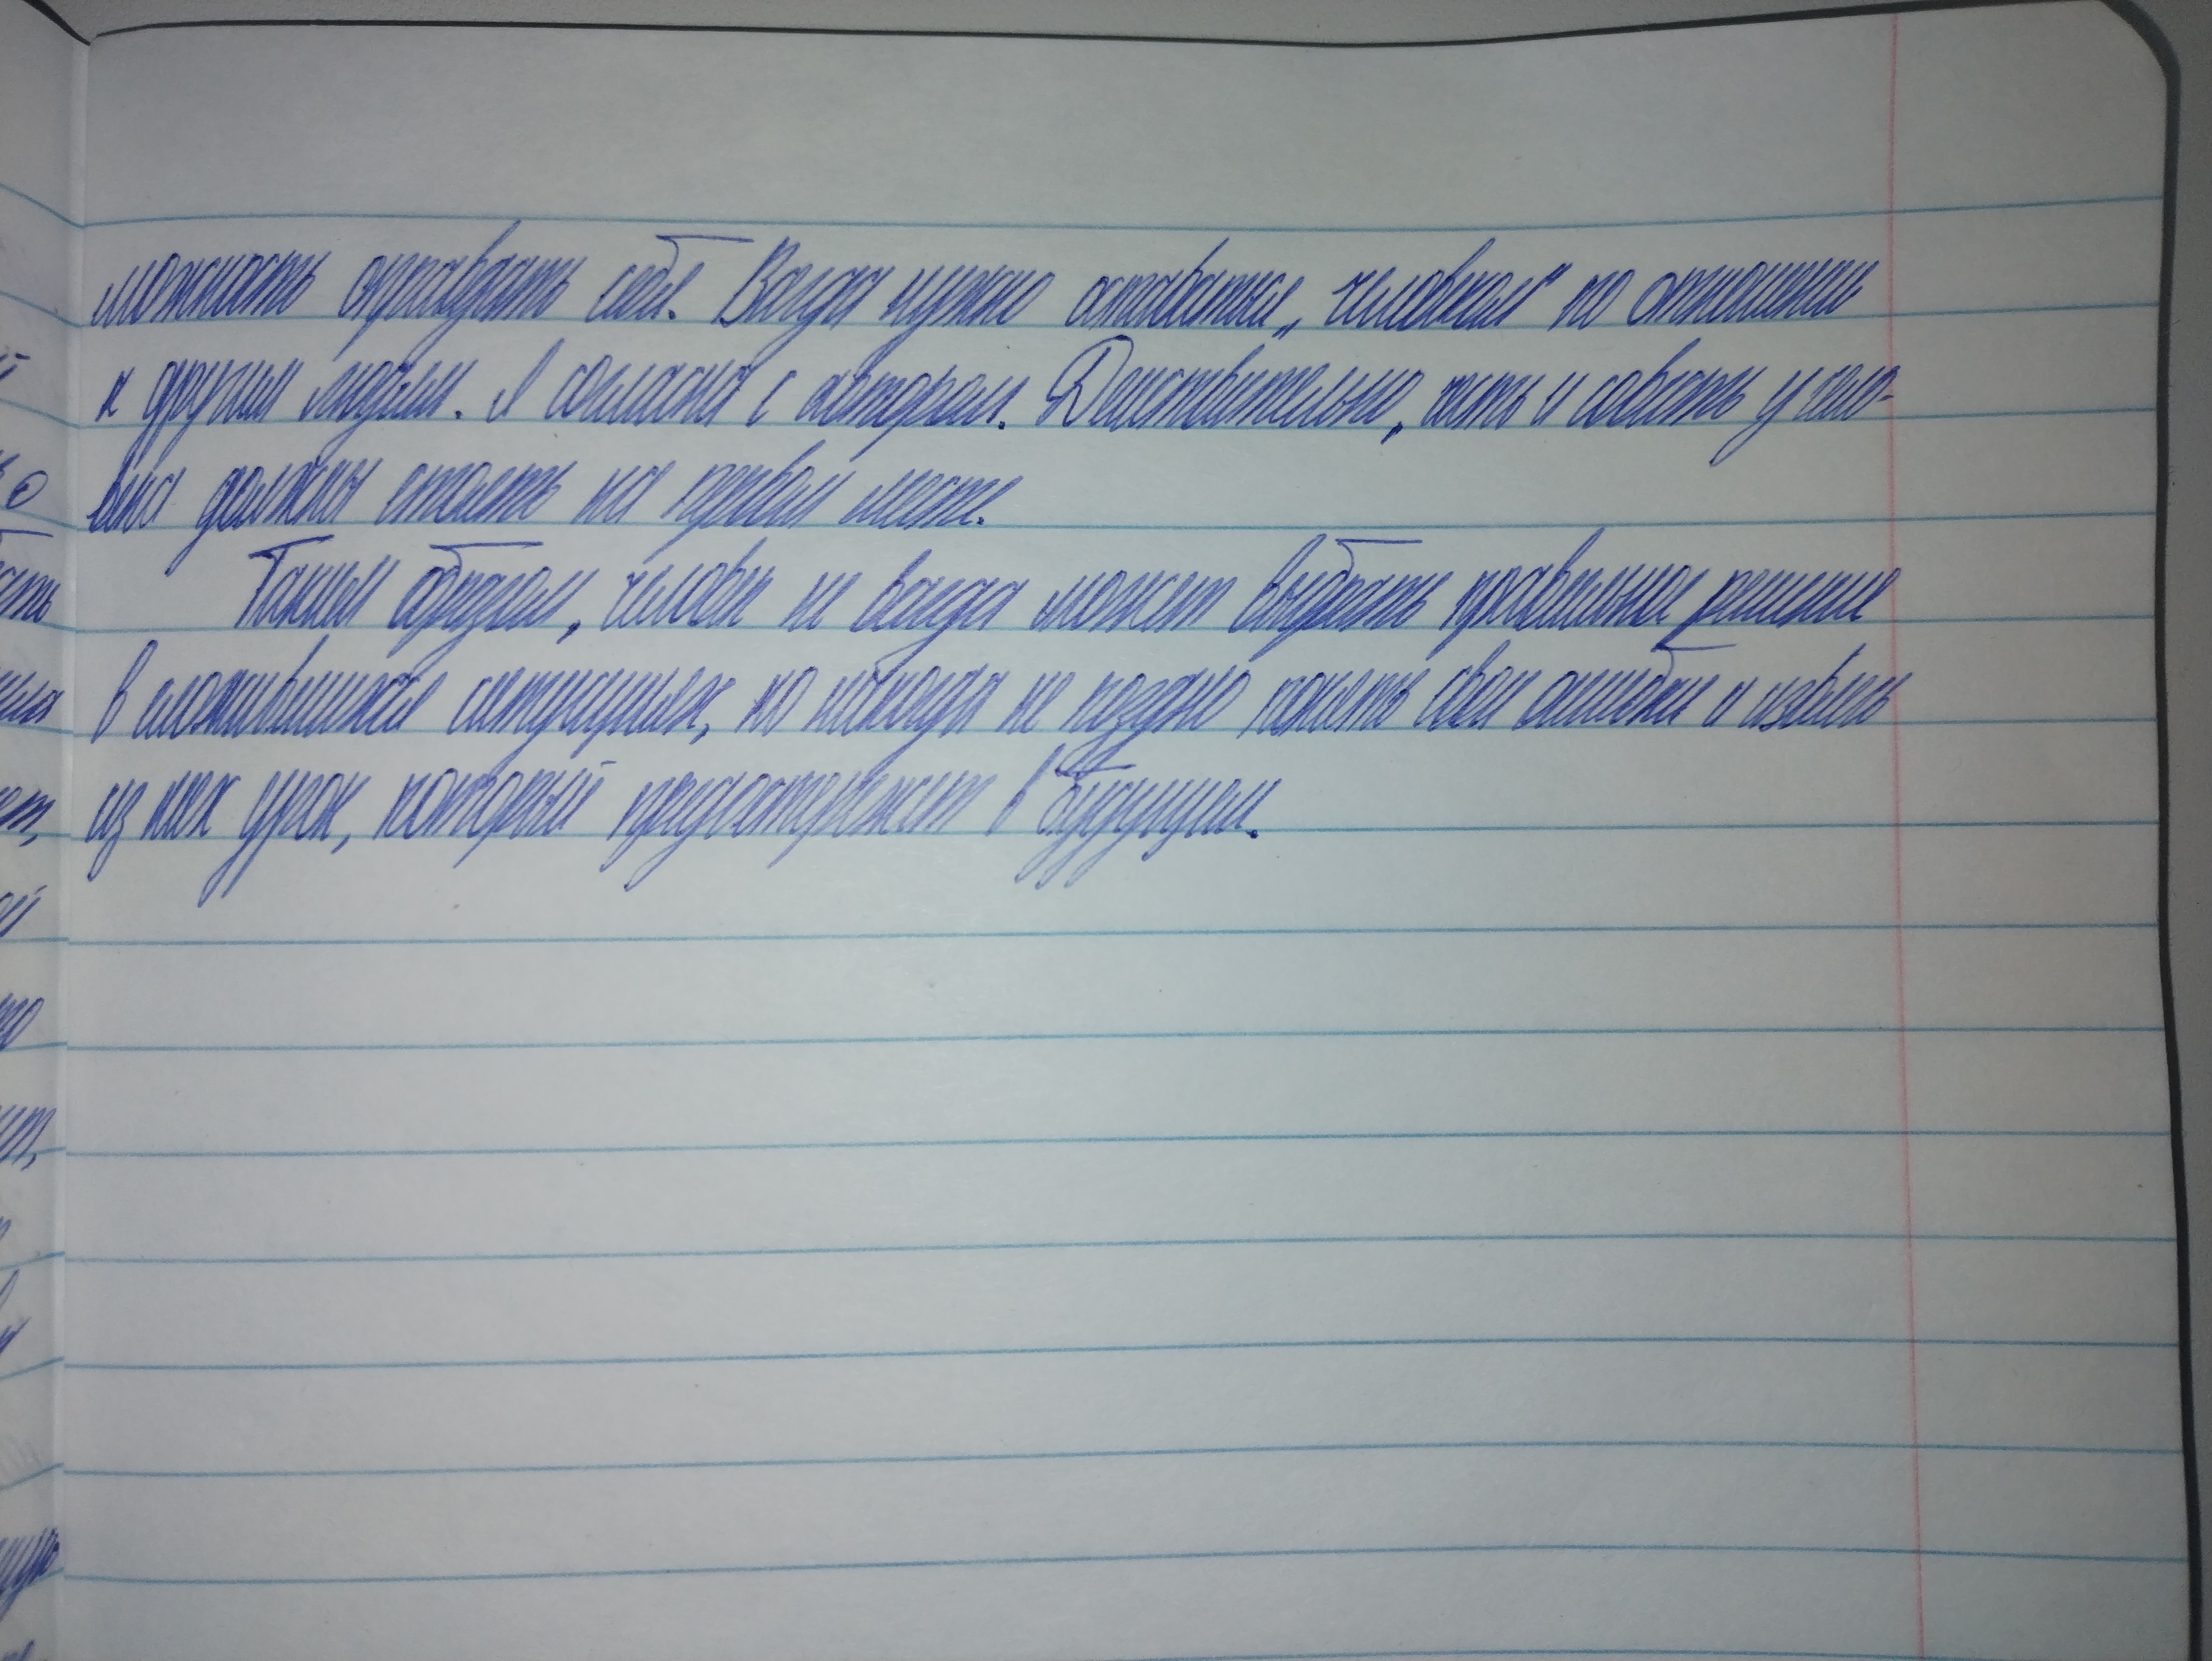 можность оправдать себя. Всегда нужно оставаться „человеком" по отношению
к другим людям. Я согласна с автором. Действительно, честь и совесть у чело-
века должны стоять на первом месте.
Таким образом, человек не всегда может выбрать правильное решение
в сложившихся ситуациях, но никогда не поздно понять свои ошибки и извлечь
из них урок, который предостережет в будущем.